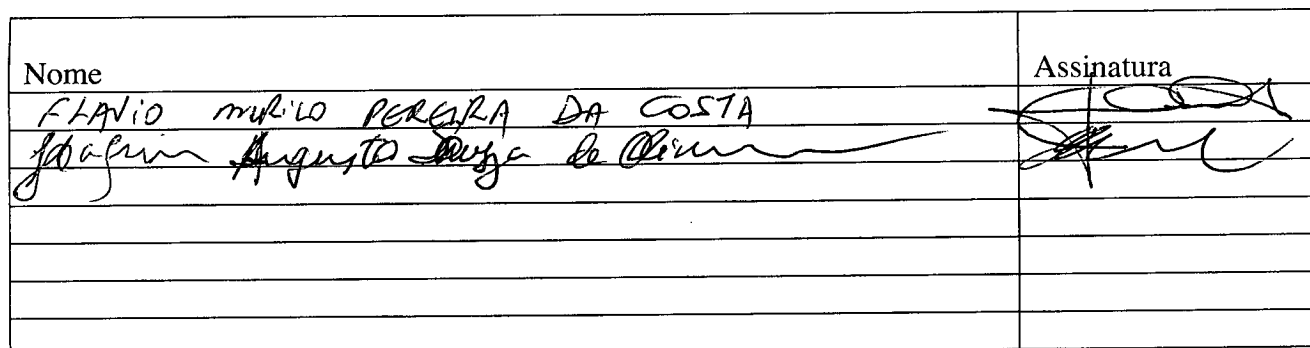 Nome Assinatura
FLAVIO MURILO PEREIRA DA COSTA
Joaquim Augusto Souza de